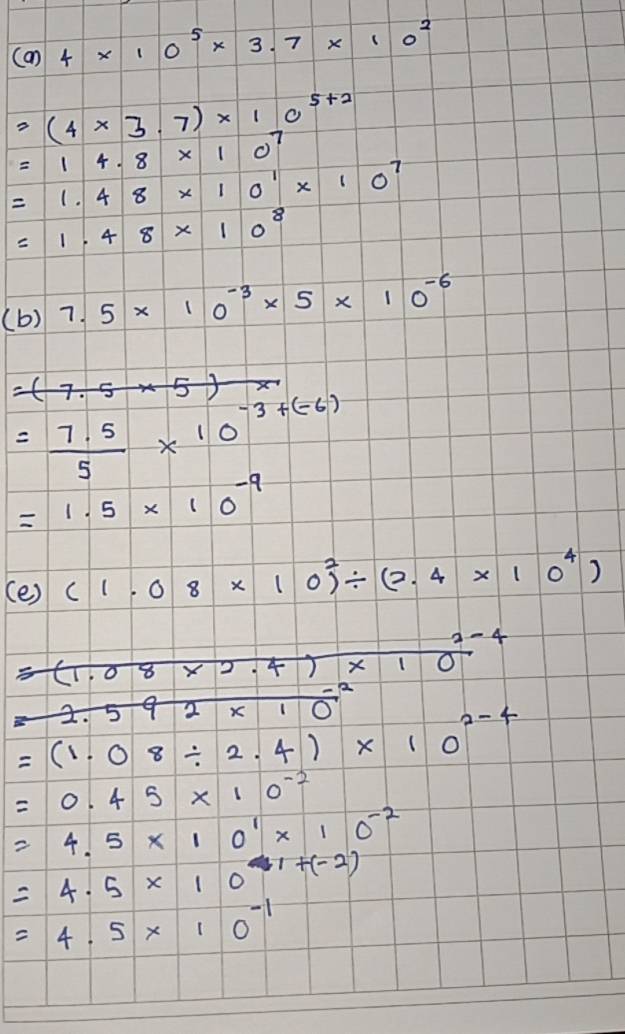 (a) 4 × 10⁵ × 3.7 × 10²
= (4 × 3.7) × 10⁵⁺²
= 14.8 × 10⁷
= 1.48 × 10¹ × 10⁷
= 1.48 × 10⁸
(b) 7.5 × 10⁻³ × 5 × 10⁻⁶
=(7.5 × 5) ×
= 7.5/5 × 10⁻³⁺⁽⁻⁶⁾
= 1.5 × 10⁻⁹
(e) (1.08 × 10)² ÷ (2.4 × 10⁴)
=(1.08 × 2.4) × 10²⁻⁴
= 2.592 × 10⁻²
= (1.08 ÷ 2.4) × 10²⁻⁴
= 0.45 × 10⁻²
= 4.5 × 10¹ × 10⁻²
= 4.5 × 10¹⁺⁽⁻²⁾
= 4.5 × 10⁻¹